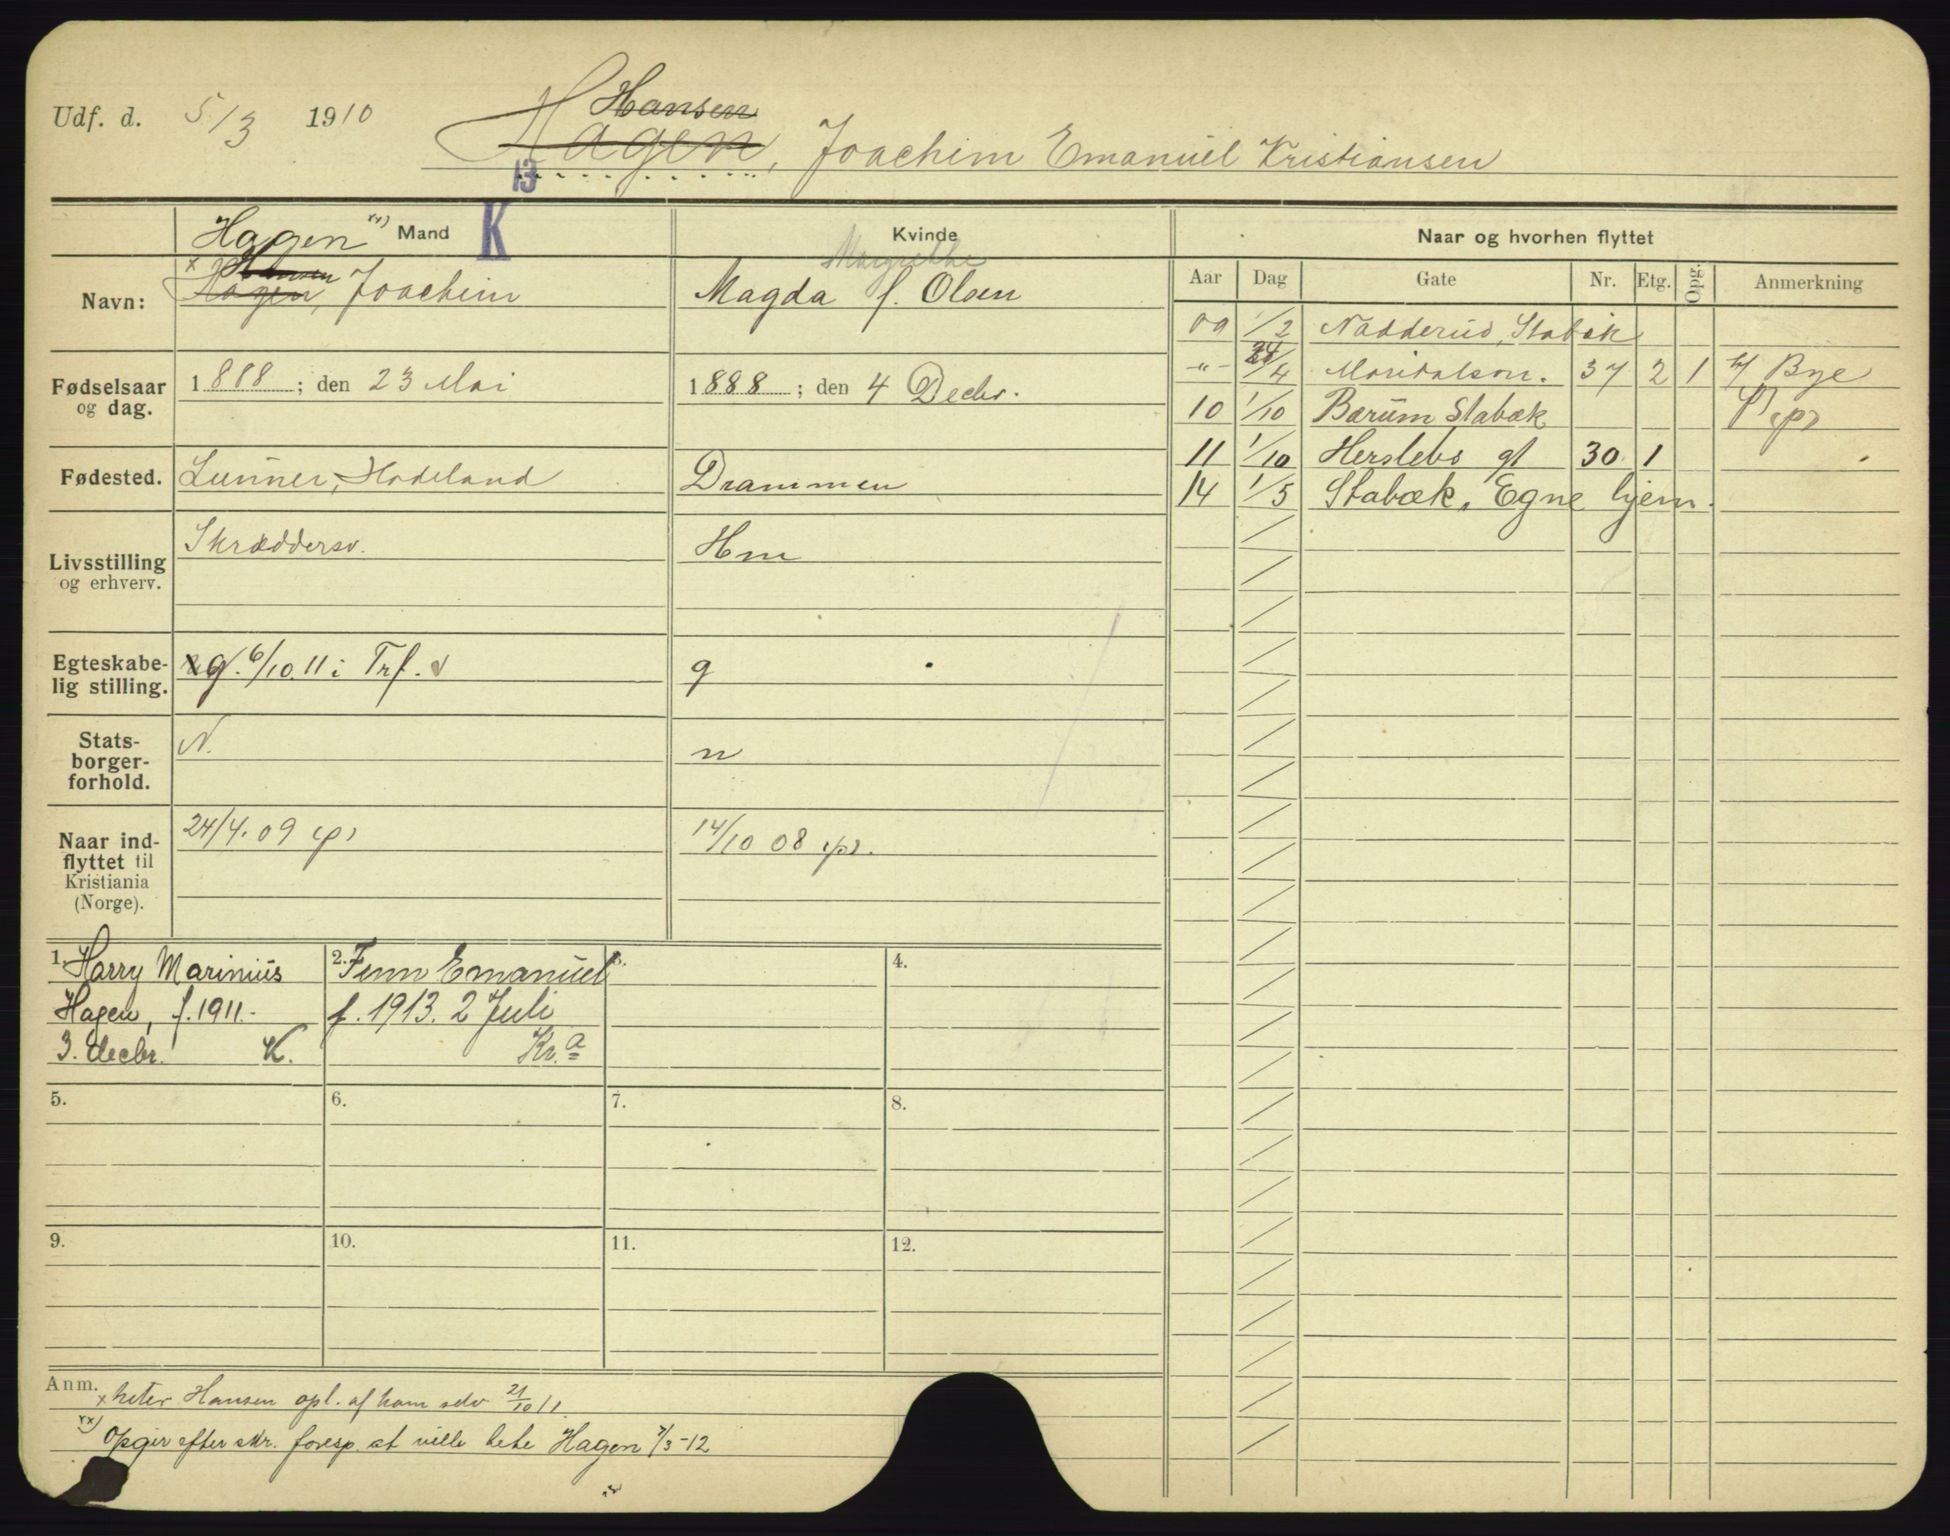 Udf. d. 5/3 1910
Hansen
Hagen, Joachim Emanuel Kristiansen
13
K
Hagen xx) Mand
Kvinde
Naar og hvorhen flyttet
Margrethe
Navn: x Hansen
Hagen, Joachim
Magda f. Olsen
Aar Dag Gate Nr. Etg. Opg. Anmerkning
09 1/2 Nadderud, Stabæk
Fødselsaar og dag. 1888; den 23 Mai
1888; den 4 Decbr.
-"- 24/4 Maridalsvn. 37 2 1 h/ Bye
10 1/10 Bærum Stabæk
11 1/10 Herslebs gt 30 1
14 1/5 Stabæk, Egne hjem.
Fødested. Lunner, Hadeland
Drammen
Livsstilling og erhverv. Skræddersv.
Hm
Egteskabe-
lig stilling. g. 6/10.11 i Trf.
g
Stats-
borger-
forhold. N.
n
Naar ind-
flyttet til
Kristiania
(Norge). 24/4.09 (p)
14/10 08 (p).
1. Harry Marinius
Hagen, f. 1911.-
3. decbr. K.
2. Finn Emanuel
f. 1913. 2 Juli
Kr.a
3.
4.
5.
6.
7.
8.
9.
10.
11.
12.
Anm. x heter Hansen opl. af ham selv 21/10 11.
xx) Opgir efter skr. foresp. at ville hete Hagen 7/3-12